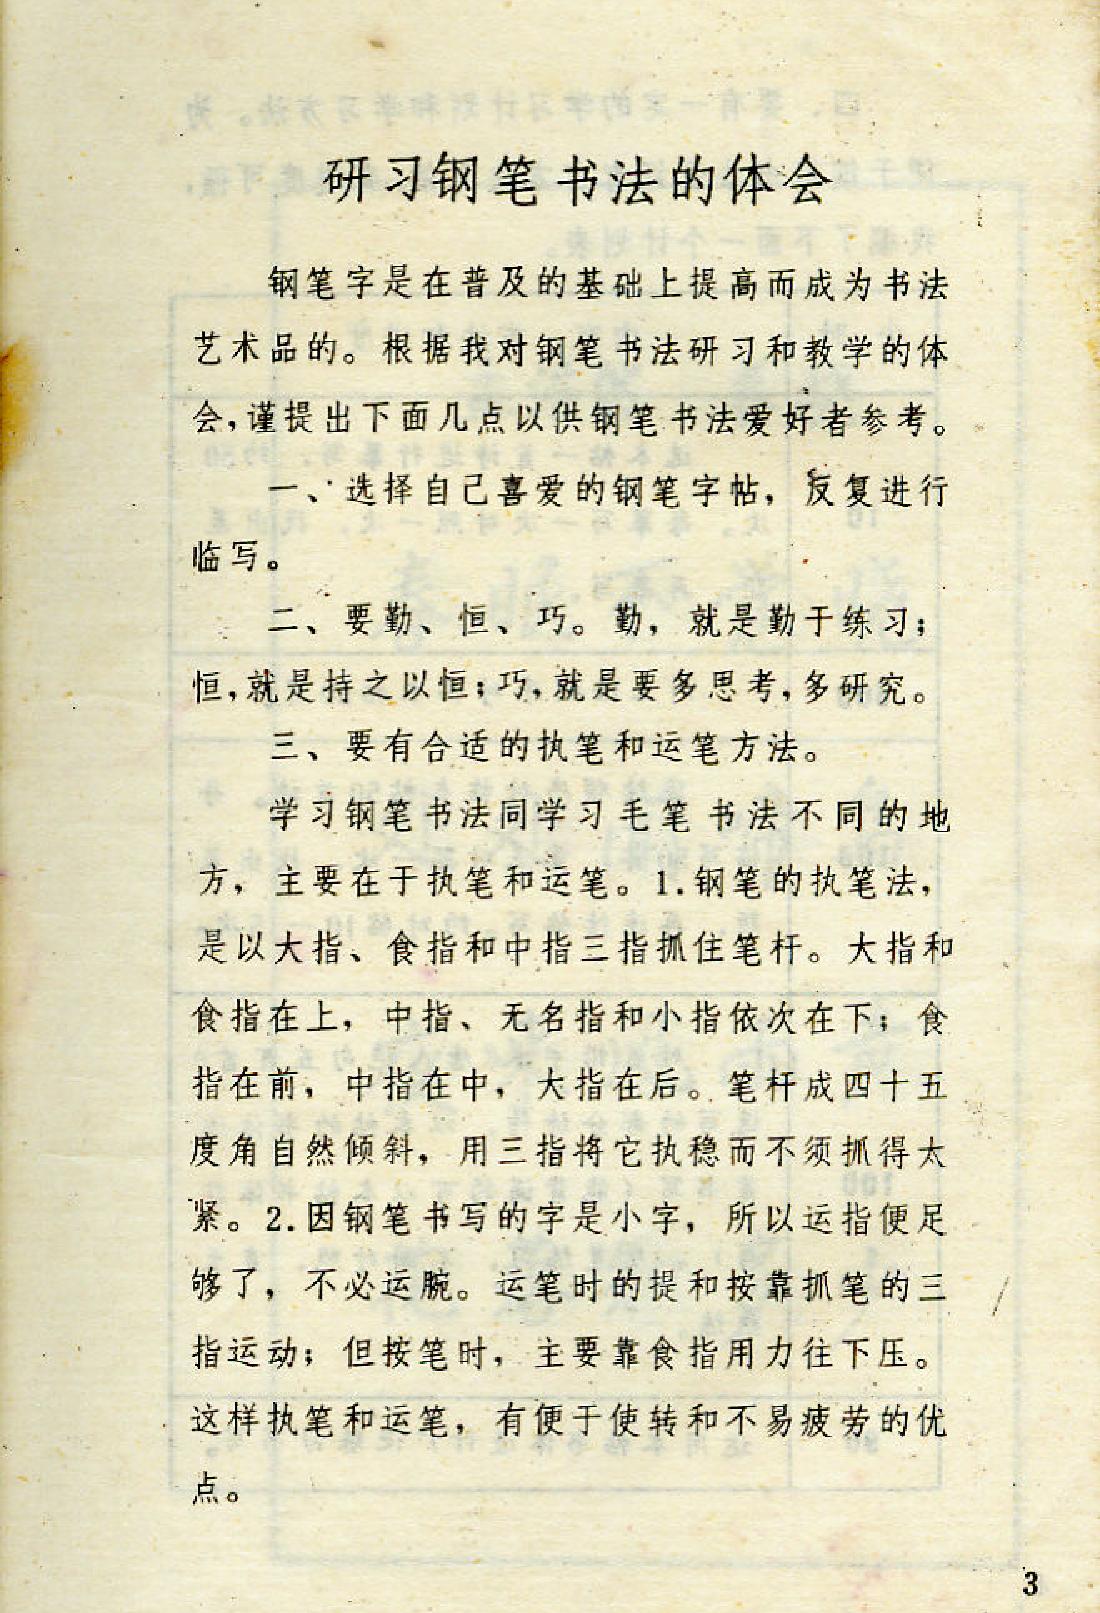 研习钢笔书法的体会
钢笔字是在普及的基础上提高而成为书法
艺术品的。根据我对钢笔书法研习和教学的体
会,谨提出下面几点以供钢笔书法爱好者参考。
一、选择自己喜爱的钢笔字帖，反复进行
临写。
二、要勤、恒、巧。勤，就是勤于练习；
恒,就是持之以恒;巧,就是要多思考,多研究。
三、要有合适的执笔和运笔方法。
学习钢笔书法同学习毛笔书法不同的地
方，主要在于执笔和运笔。1.钢笔的执笔法，
是以大指、食指和中指三指抓住笔杆。大指和
食指在上，中指、无名指和小指依次在下；食
指在前，中指在中，大指在后。笔杆成四十五
度角自然倾斜，用三指将它执稳而不须抓得太
紧。2.因钢笔书写的字是小字，所以运指便足
够了，不必运腕。运笔时的提和按靠抓笔的三
指运动；但按笔时，主要靠食指用力往下压。
这样执笔和运笔，有便于使转和不易疲劳的优
点。
3